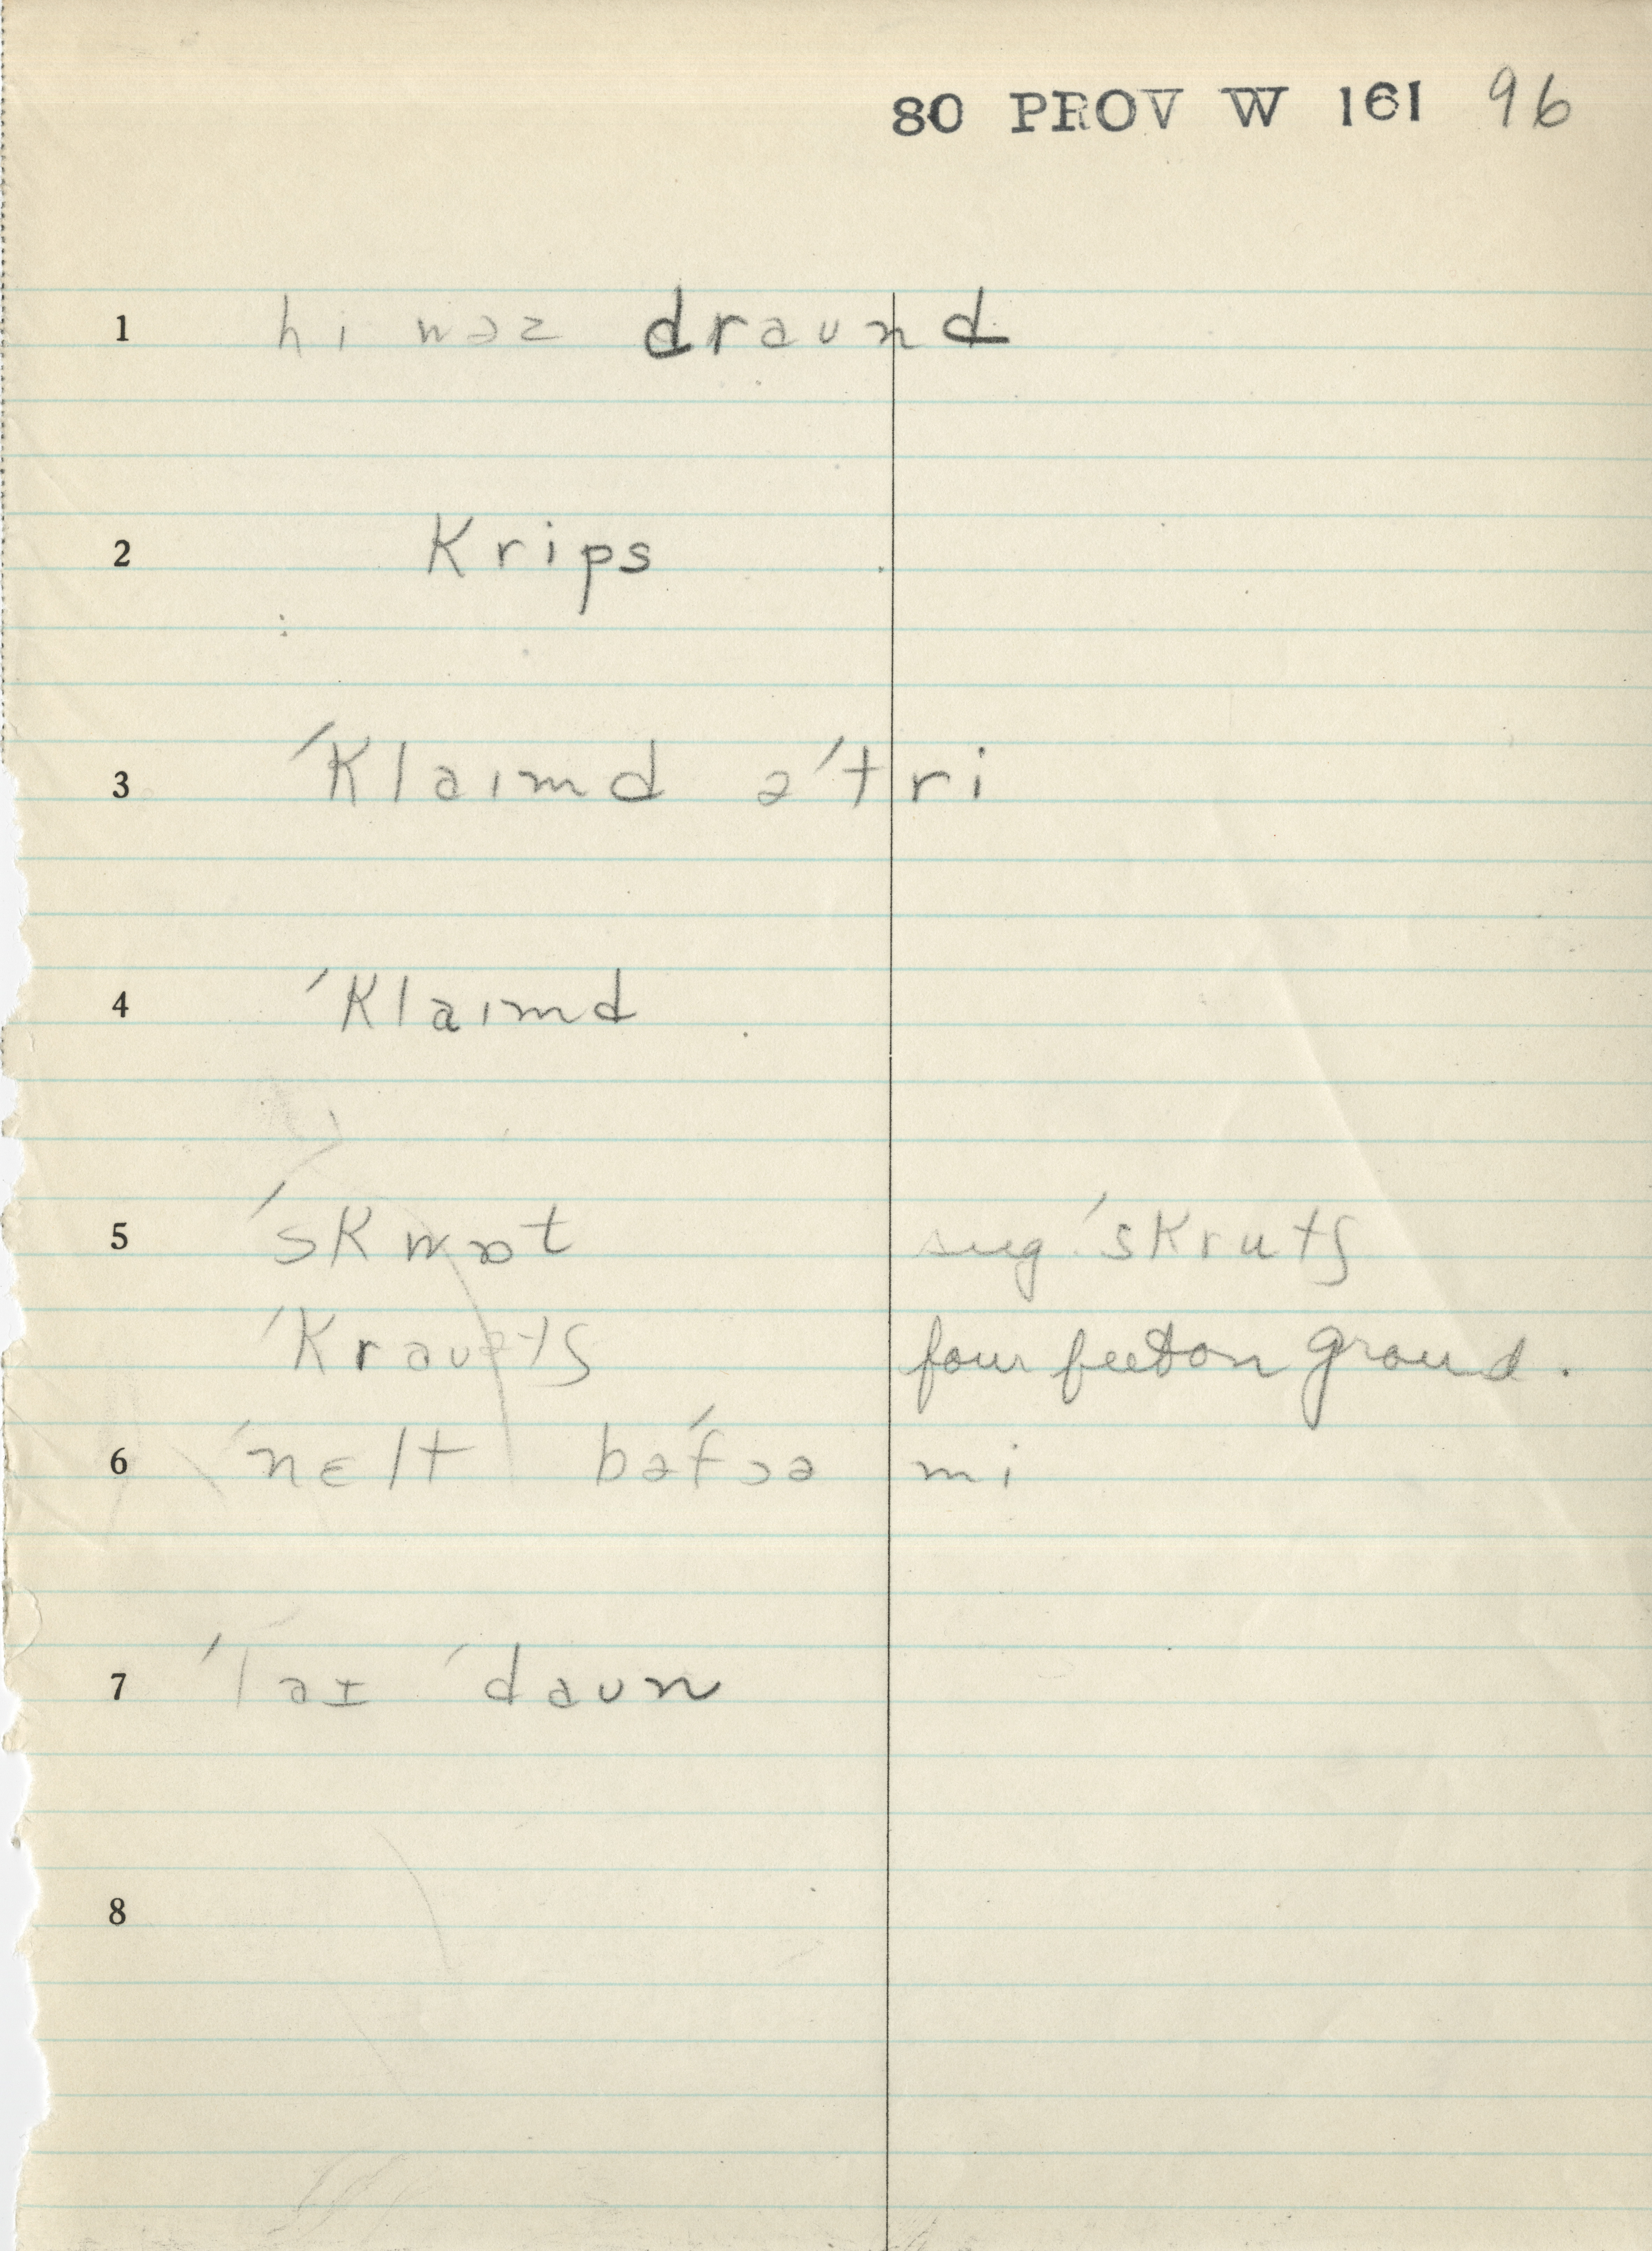 80 PROV W 161 96
1 hi wəz draʊnd
2 krips
3 ˈklaɪmd əˈtri
4 ˈklaɪmd
5 ˈskwɒt sug. ˈskrutʃ
ˈkraʊətʃ four feet on ground.
6 ˈnɛlt bəˈfɔə mi
7 ˈlaɪ ˈdaʊn
8